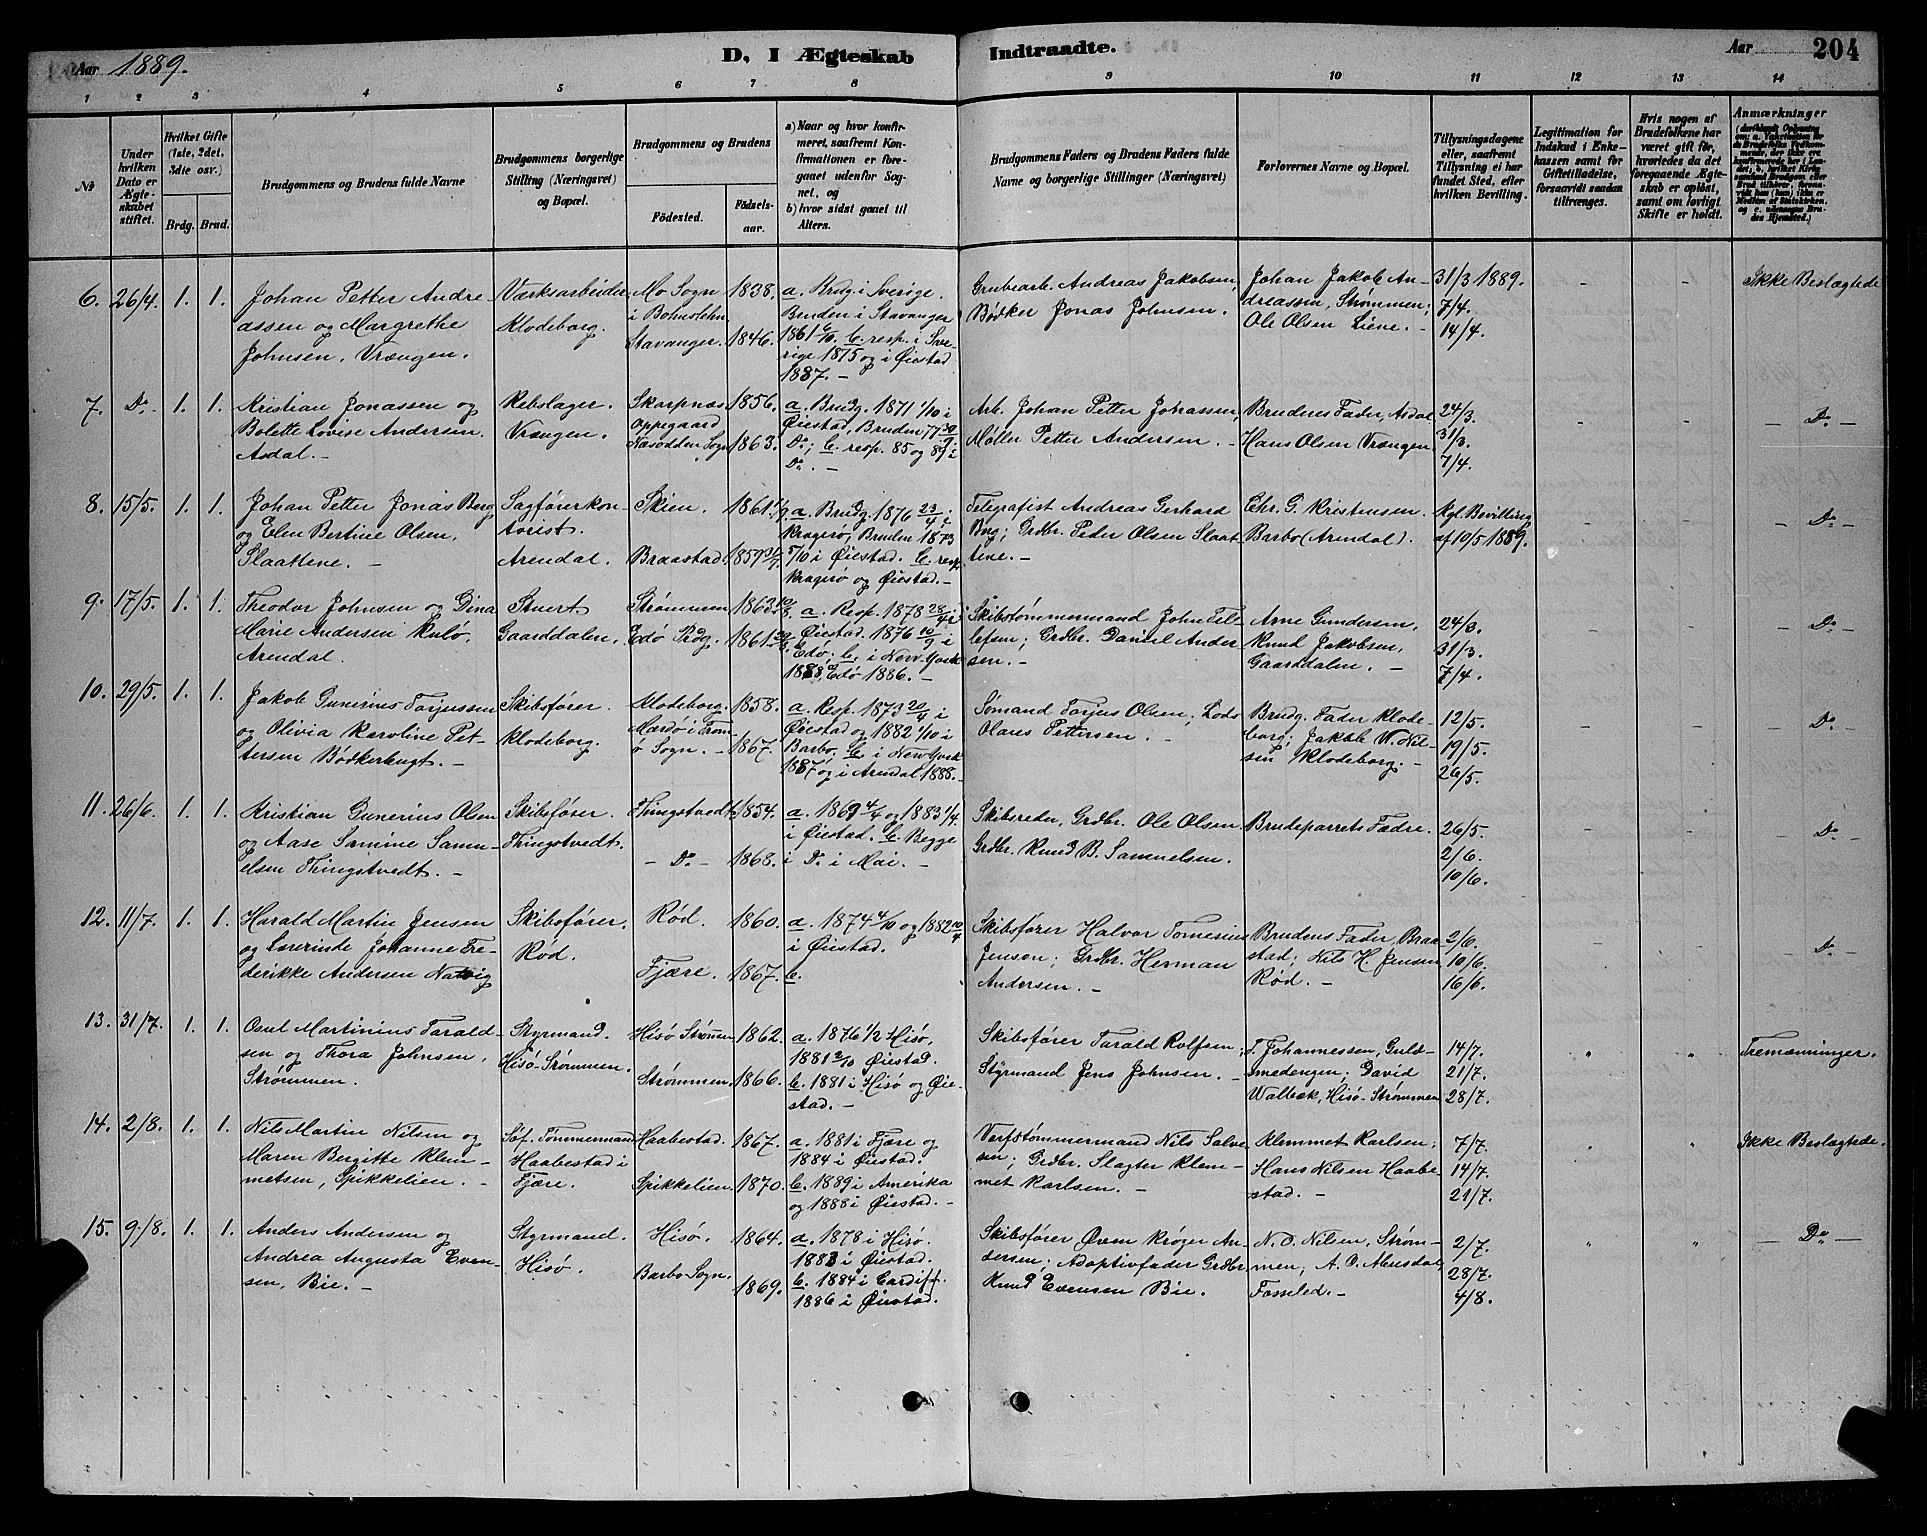 Aar 1889.
D, I Ægteskab Indtraadte.
Aar 204
1 2 3 4 5 6 7 8 9 10 11 12 13 14
№
Under hvilken Dato er Ægteskabet stiftet.
Hvilket Gifte (1ste, 2det, 3die osv.)
Brdg. Brud.
Brudgommens og Brudens fulde Navne
Brudgommens borgerlige Stilling (Næringsvei) og Bopæl.
Brudgommens og Brudens
Födested.
Födsels-aar.
a) Naar og hvor konfirmeret, saafremt Konfirmationen er foregaaet udenfor Sognet, og
b) hvor sidst gaaet til Alters.
Brudgommens Faders og Brudens Faders fulde Navne og borgerlige Stillinger (Næringsvei)
Forlovernes Navne og Bopæl.
Tillysningsdagene eller, saafremt Tillysning ei har fundet Sted, efter hvilken Bevilling.
Legitimation for Indskud i Enkekassen samt for Giftetilladelse, forsaavidt saadan tiltrænges.
Hvis nogen af Brudefolkene har været gift för, hvorledes da det foregaaende Ægteskab er oplöst, samt om lovligt Skifte er holdt.
Anmærkninger
6. 26/4. 1. 1.
Johan Petter Andre
assen og Margrethe
Johnsen, Vrængen.
Værksarbeider
Klodeborg.
Mo Sogn
i Bohuslehn.
Stavanger.
1838.
1846.
a. Brdg. i Sverige.
Bruden i Stavanger
1861 6/10. b. resp. i Sve-
rige 1875 og i Øiestad
1887. –
Grubearb. Andreas Jakobsen,
Bødker Jonas Johnsen.
Johan Jakob An-
dreassen, Strømmen;
Ole Olsen Liene. –
31/3 1889.
7/4.
14/4.
Ikke Beslægtede
7. Do. 1. 1.
Kristian Jonassen og
Bolette Lovise Andersen.
Asdal. –
Rebslager.
Vrængen.
Skarpnæs
Oppegaard
Næsodden Sogn
1856.
1863.
a. Brudg. 1871 1/10 i
Øiestad, Bruden 77 30/9 i
Do; b. resp. 85 og 89 i
Do. –
Arb. Johan Petter Johassen,
Møller Petter Andersen. –
Brudens Fader, Asdal
Hans Olsen Vrængen
24/3.
31/3.
7/4.
– Do –
8. 15/5. 1. 1.
Johan Petter Jonas Berg
og Elen Bertine Olsen,
Slaattene. –
Sagførerkon-
torist.
Arendal.
Skien.
Braastad.
1861
1859
a. Brudg. 1876 23/4 i
Kragerø, Bruden 1873
5/10 i Øiestad. b. resp.
Kragerø og Øiestad. –
Telegrafist Andreas Gerhard
Berg; Grdbr. Peder Olsen Slaat
tene. –
Chr. G. Kristensen.
Barbo (Arendal).
Kgl. Bevilling
af 10/5 1889.
– Do –
9. 17/5. 1. 1.
Theodor Johnsen og Gina
Marie Andersen Kulø,
Arendal.
Stuert.
Gaarddalen.
Strømmen
Edø Prdg.
1863
1861
a. Resp. 1878 28/4 i
Øiestad. 1876 10/9 i
Edø. b. i New York
1888, Edø 1886. –
Skibstømmermand John Tel-
lefsen; Grdbr. Daniel Ander
sen. –
Arne Gundersen,
Knud Jakobsen,
Gaarddalen. –
24/3.
31/3.
7/4.
– Do –
10. 29/5. 1. 1.
Jakob Gunerius Torjussen
og Olivia Karoline Pet-
tersen Bødkerbugt. –
Skibsfører.
Klodeborg.
Klodeborg.
Mærdø i Trom
ø Sogn. –
1858.
1867.
a. Resp. 1873 20/4 i
Øiestad og 1882 1/10 i
Barbo. b. i New York
1887, og i Arendal 1888. –
Sømand Torjus Olsen, Lods
Olaus Pettersen. –
Brudg. Fader Klode-
borg; Jakob W. Nil-
sen Klodeborg. –
12/5.
19/5.
26/5.
– Do –
11. 26/6. 1. 1.
Kristian Gunerius Olsen
og Aase Samine Samu-
elsen Thingstvedt. –
Skibsfører.
Thingstvedt.
Thingstvedt.
– Do –
1854.
1868.
a. 1869 4/4 og 1883 1/4.
i Øiestad. b. Begge
i Do i Mai. –
Skibsreder, Grdbr. Ole Olsen
Grdbr. Knud B. Samuelsen.
Brudeparrets Fædre.
26/5.
2/6.
10/6.
– Do –
12. 11/7. 1. 1.
Harald Martin Jensen
og Lærerinde Johanne Fre-
derikke Andersen Natvig
Skibsfører.
Rød.
Rød.
Fjære.
1860.
1867.
a. 1874 4/10 og 1882 10/4
i Øiestad.
b.
Skibsfører Halvor Tomesius
Jenson; Grdbr. Herman
Andersen. –
Brudens Fader, Braa
stad; Nils H. Jensen
Rød. –
2/6.
10/6.
16/6.
– Do –
13. 31/7. 1. 1.
Osul Martinius Tarald-
sen og Thora Johnsen,
Strømmen.
Styrmand.
Hisø-Strømmen.
Hisø Strømmen
Strømmen.
1862.
1866.
a. 1876 1/2 Hisø,
1881 2/10 Øiestad.
b. 1881 i Hisø og Øie-
stad. –
Skibsfører Tarald Rolfsen;
Styrmand Jens Johnsen. –
T. Johannessen, Guld-
smedengen; David
Walbæk, Hisø-Strømmen
14/7.
21/7.
28/7.
Tremænninger.
14. 2/8. 1. 1.
Nils Martin Nilsen og
Maren Bergitte Klem-
metsen, Spikkelien. –
Søf. Tømmermand
Haabestad i
Fjære.
Haabestad.
Spikkelien.
1867.
1870.
a. 1881 i Fjære og
1884 i Øiestad.
b. 1889 i Amerika
og 1888 i Øiestad. –
Verfstømmermand Nils Salve
sen; Grdbr. Slagter Klem-
met Karlsen. –
Klemmet Karlsen;
Hans Nilsen Haabe
stad. –
7/7.
14/7.
21/7.
Ikke Beslægtede.
15. 9/8. 1. 1.
Anders Andersen og
Andrea Augusta Even-
sen, Bie. –
Styrmand.
Hisø.
Hisø.
Barbo Sogn.
1864.
1869.
a. 1878 i Hisø.
1883 i Øiestad.
b. 1884 i Cardiff.
1886 i Øiestad.
Skibsfører Ørem Krøger An-
dersen; Adoptivfader Grdbr.
Knud Evensen Bie.
N. O. Nilsen, Strøm-
men; A. O. Ausdal,
Fosseled. –
2/7.
28/7.
4/8.
– Do –